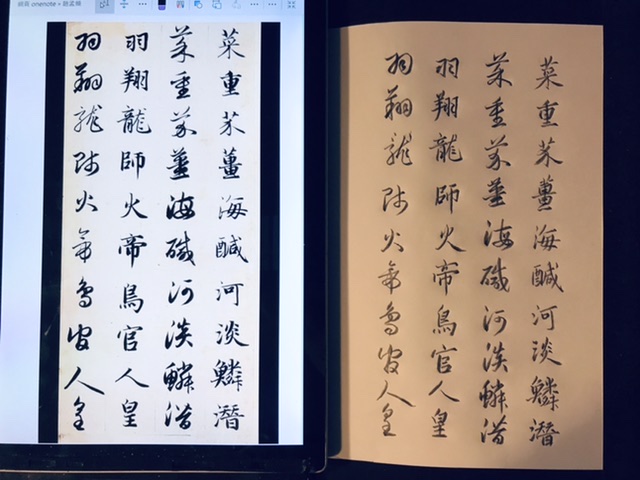 onenote
菜重芥薑海鹹河淡鱗潛
菜重芥薑海鹹河淡鱗潛
羽翔龍師火帝鳥官人皇
羽翔龍師火帝鳥官人皇
菜重芥薑海鹹河淡鱗潛
菜重芥薑海鹹河淡鱗潛
羽翔龍師火帝鳥官人皇
羽翔龍師火帝鳥官人皇